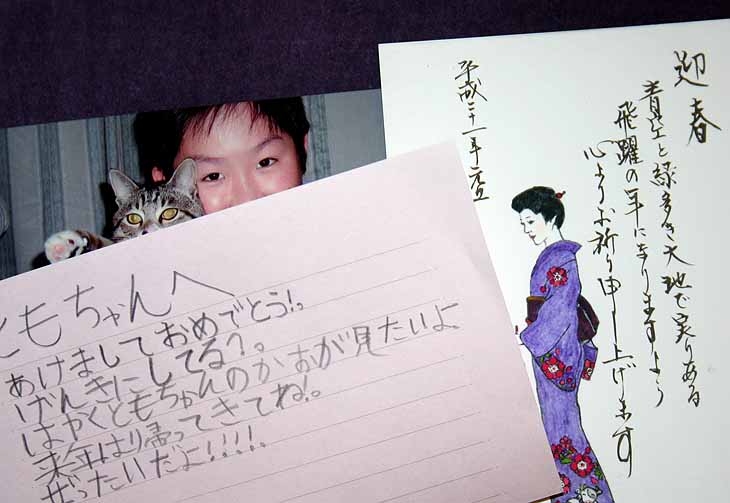 ともちゃんへ
あけましておめでとう!。
げんきにしてる?。
はやくともちゃんのかおが見たいよ
来年はり帰ってきてね!。
ぜったいだよ!!!!。
迎春
青空と緑多き大地で実りある
飛躍の年になりますよう
心よりお祈り申し上げます
平成二十一年